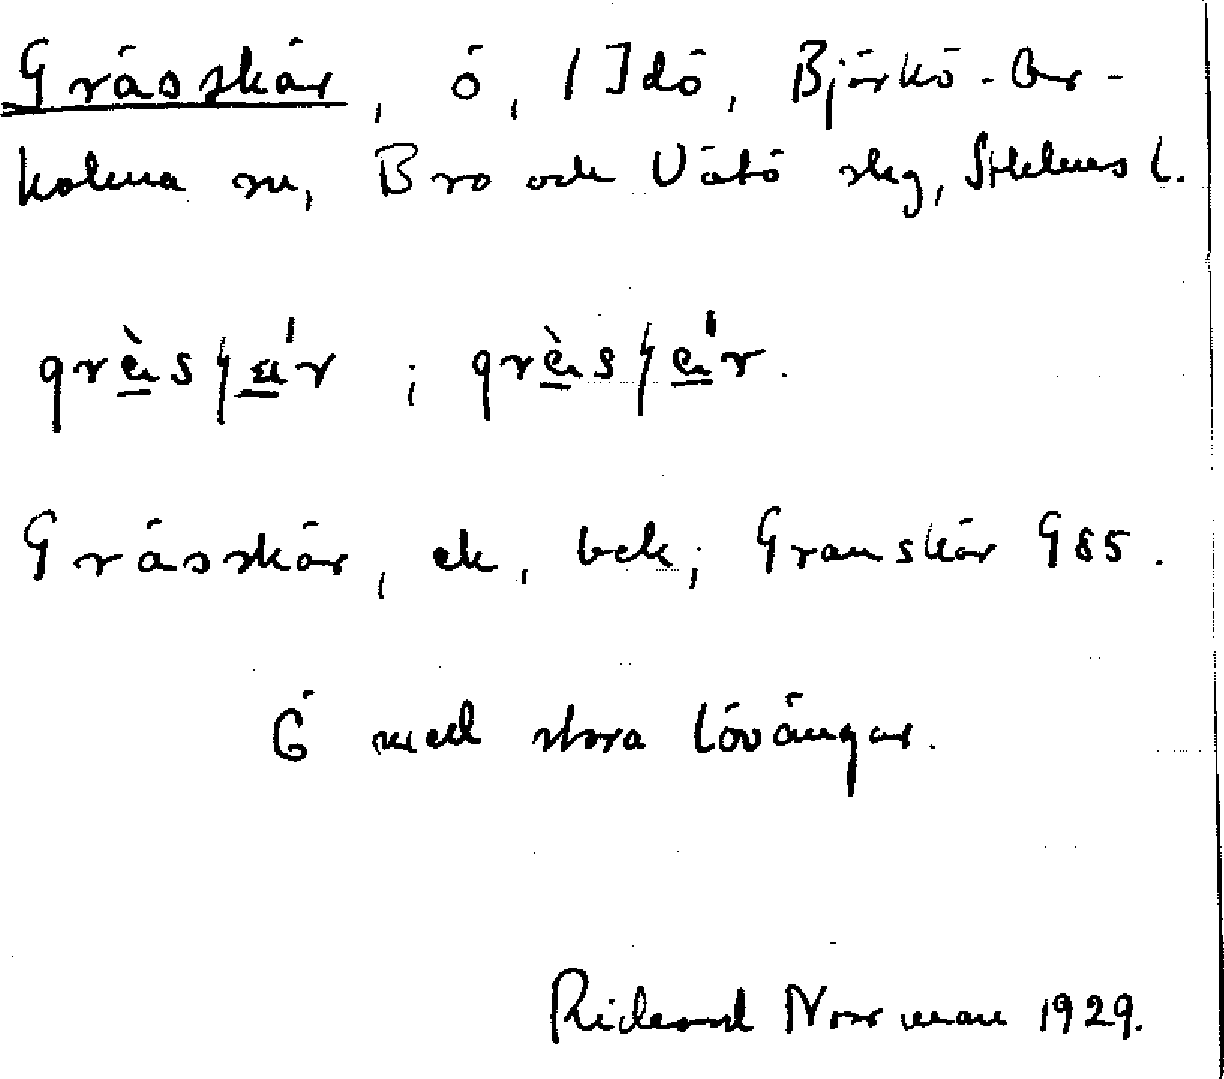 Grässkär, ö, 1 Idö, Björkö-Ar-
holma sn, Bro och Vätö skg, Sthlms l.
Grässkär, ek, bek; Granskär G85.
Ö med stora lövängar.
Rickard Norrman 1929.